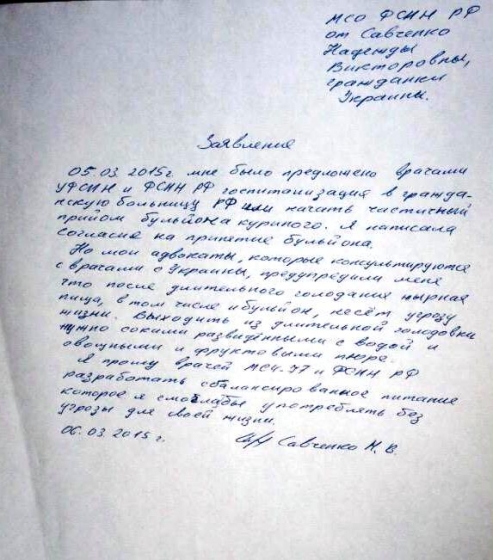 МСО ФСИН РФ
от Савченко
Надежды
Викторовны,
гражданки
Украины.
Заявление
05.03.2015г. мне было предложено врачами
УФСИН и ФСИН РФ госпитализация в граждан-
скую больницу РФ или начать частичный
прийом бульйона куриного. Я написала
согласие на принятие бульйона.
Но мои адвокаты, которые консультируются
с врачами с Украины, предупредили меня
что после длительного голодания жирная
пища, в том числе и бульйон, несёт угрозу
жизни. Выходить из длительной голодовки
нужно соками разведёнными с водой и
овощными и фруктовыми пюре.
Я прошу врачей МСЧ-77 и ФСИН РФ
разработать сбалансированное питание
которое я смогла бы употреблять без
угрозы для своей жизни.
06.03.2015г. Савченко Н.В.